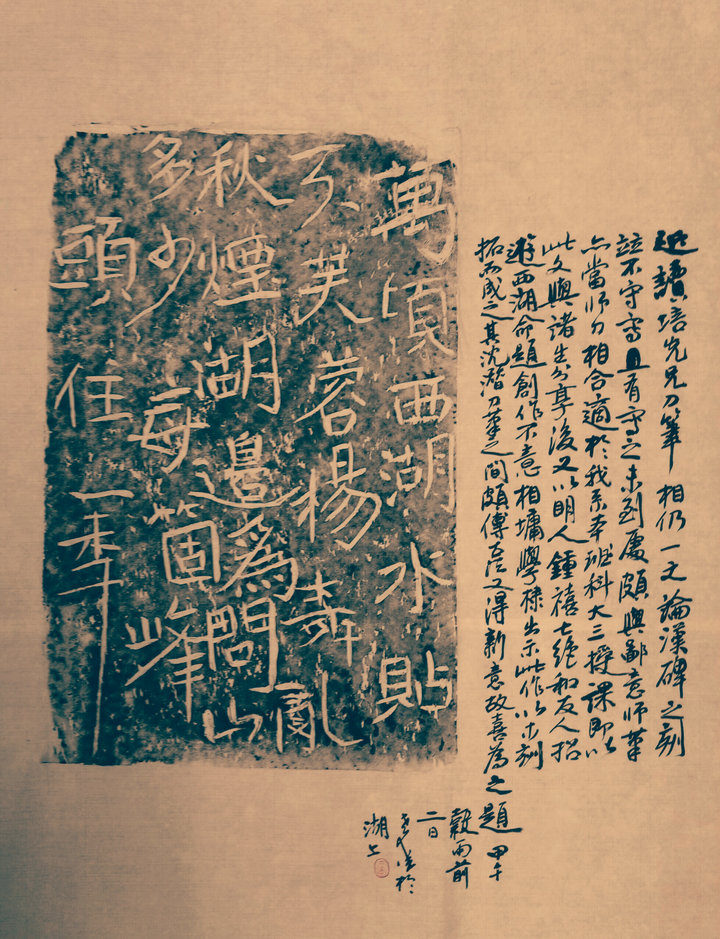 近讀培先兄刀筆相仍一文論漢碑之刻
不守寫且有寫之未到處頗與鄙意師筆
亦當師刀相合適於我系本班科大三授課即以
此文與諸生分享後又以明人鍾禧七絕和友人招
遊西湖命題創作不意相墉學棣出示此作以木刻
拓而成之其沈潛刀筆之間頗傳古法又得新意故喜為之題 甲午
穀雨前
二日
於
湖上
萬頃西湖水貼
天芙蓉楊柳亂
秋煙湖邊為問山
多少每箇峰
頭住一秊